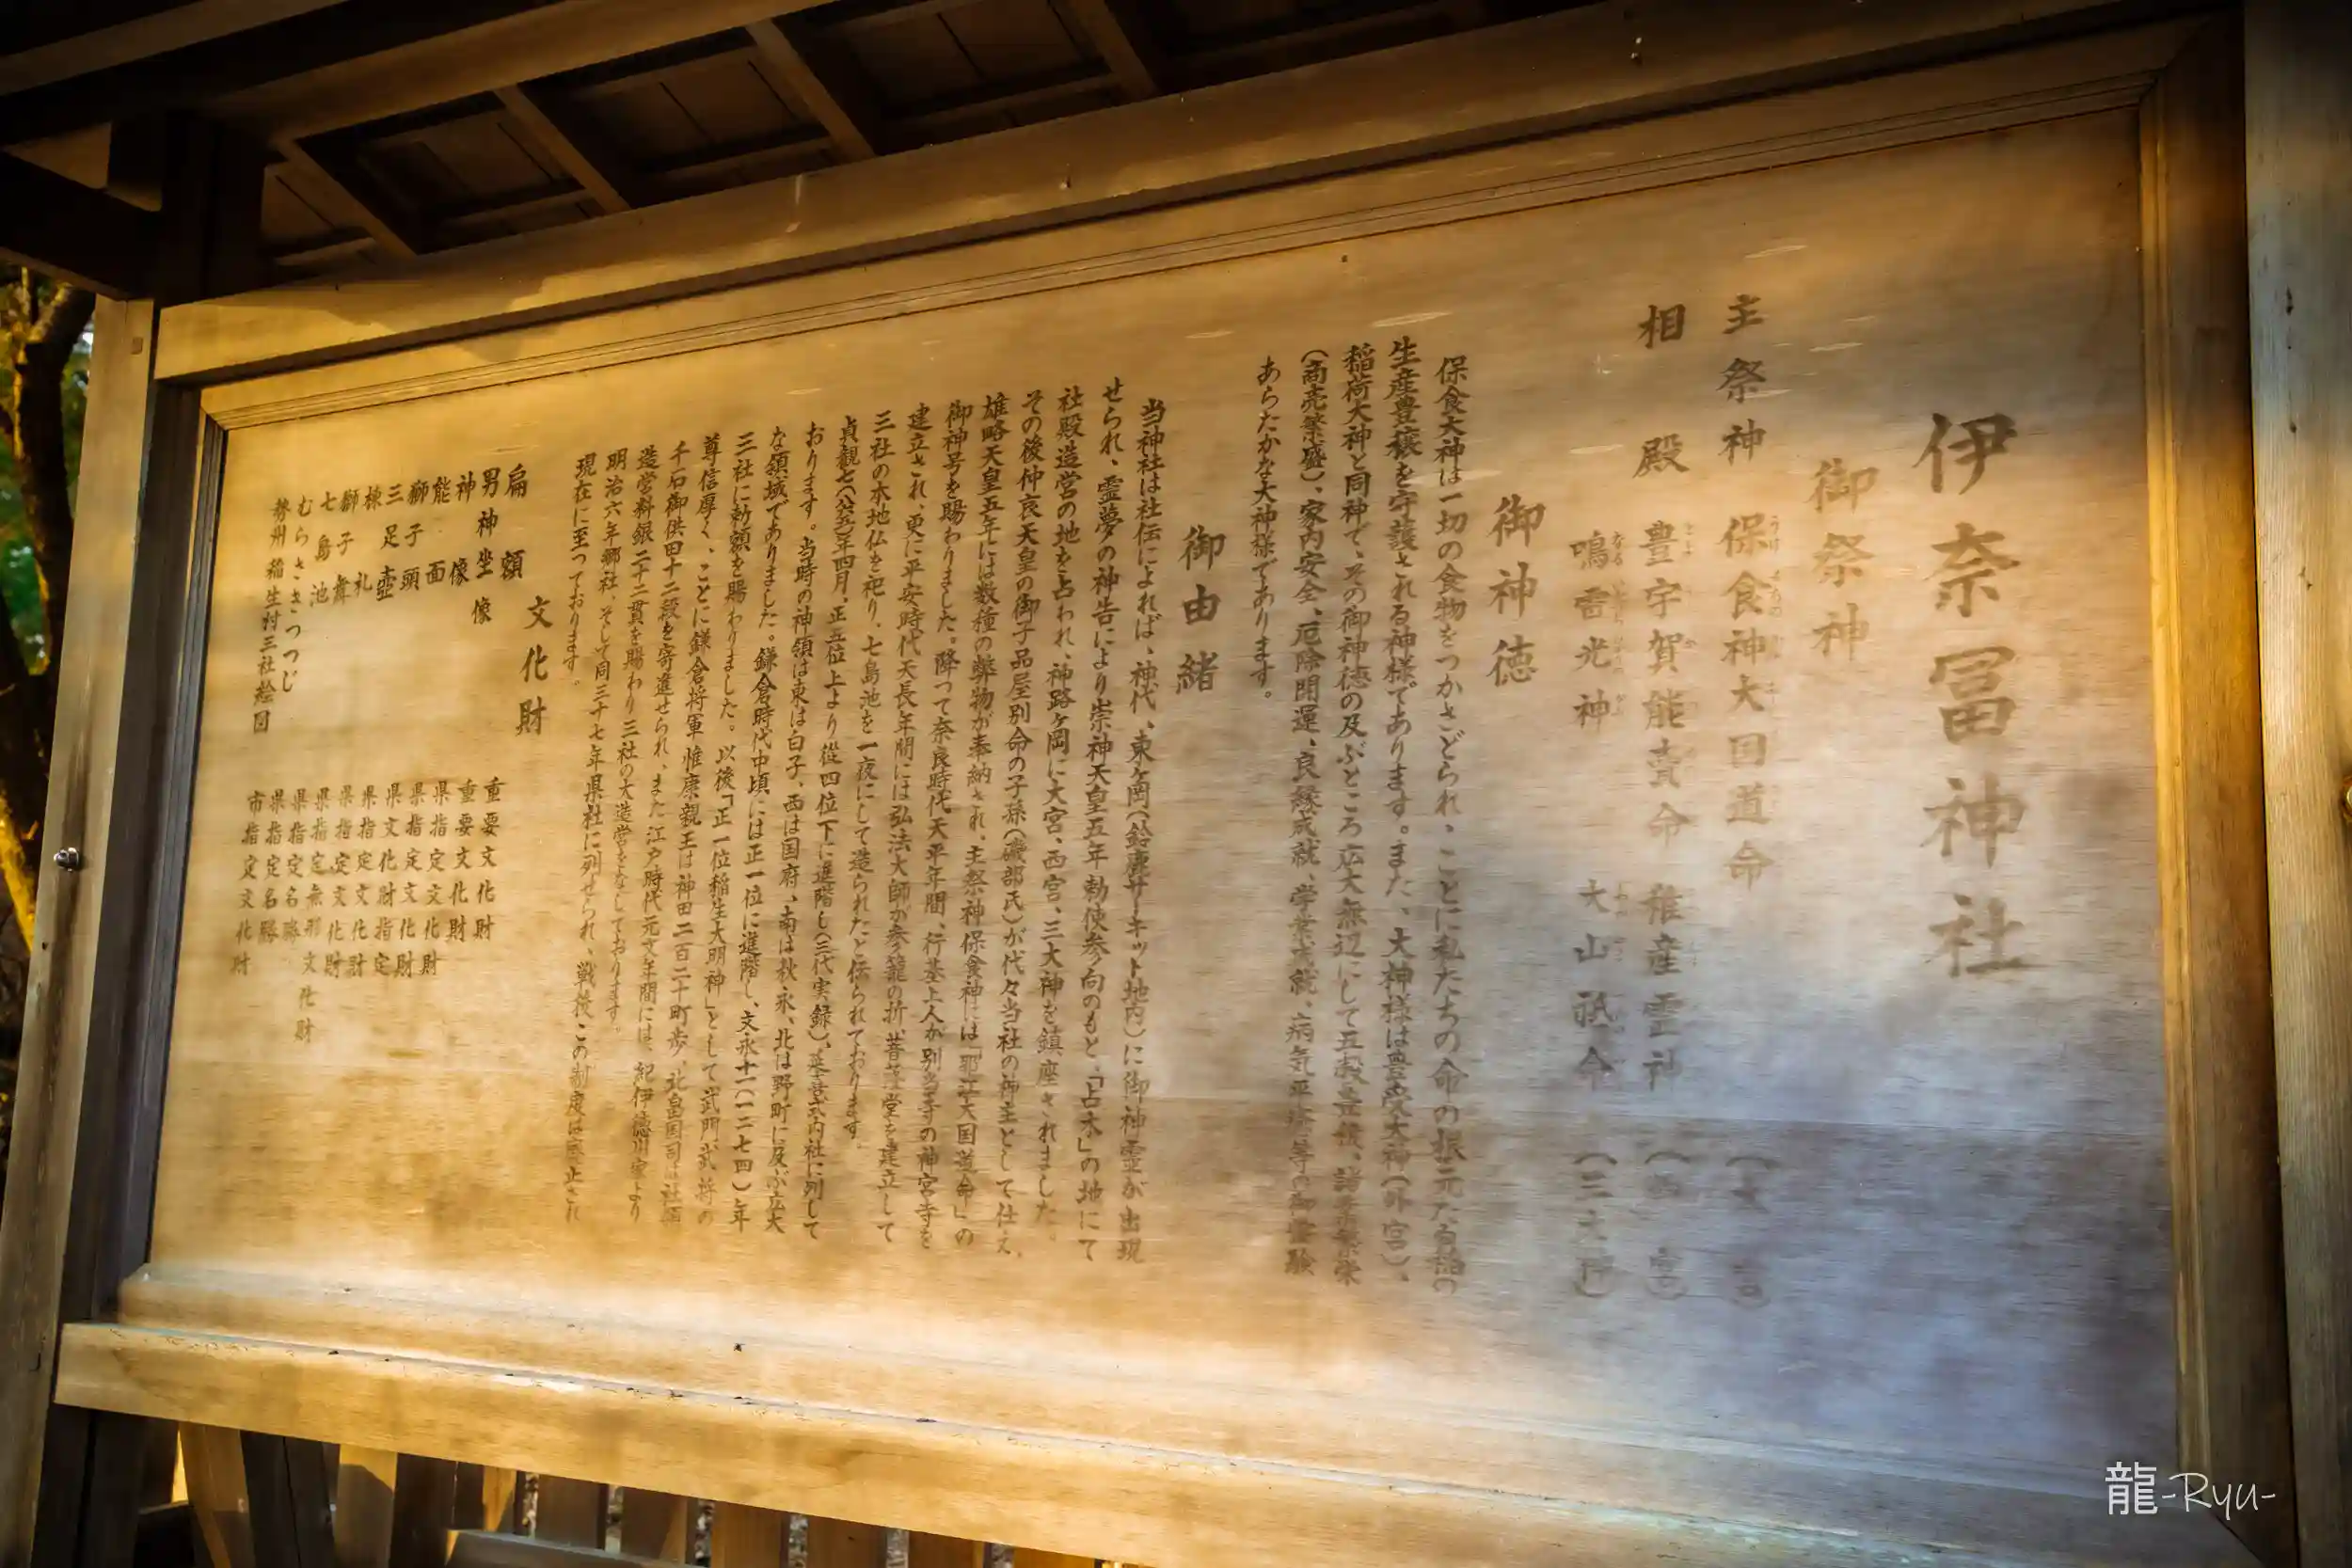 伊奈冨神社
御祭神
主祭神 保食神大国道命 (大宮)
相殿 豊宇賀能売命 稚産霊神 (西宮)
鳴雷光神 大山祇命 (三大神)
御神徳
保食大神は一切の食物をつかさどられ、ことに私たちの命の根元たる稲の
生産豊穣を守護される神様であります。また、大神様は豊受大神(外宮)、
稲荷大神と同神で、その御神徳の及ぶところ広大無辺にして五穀豊穣、諸業繁栄
(商売繁盛)、家内安全、厄除開運、良縁成就、学業成就、病気平癒等の御霊験
あらたかな大神様であります。
御由緒
当神社は社伝によれば、神代、東ヶ岡(鈴鹿サーキット地内)に御神霊が出現
せられ、霊夢の神告により崇神天皇五年勅使参向のもと「占木」の地にて
社殿造営の地を占われ、神路ヶ岡に大宮、西宮、三大神を鎮座されました。
その後仲哀天皇の御子品屋別命の子孫(磯部氏)が代々当社の神主として仕え、
雄略天皇五年には数種の幣物が奉納され、主祭神保食神には「那江大国道命」の
御神号を賜わりました。降つて奈良時代天平年間、行基上人が別当寺の神宮寺を
建立され、更に平安時代天長年間には弘法大師が参籠の折、菩薩堂を建立して
三社の本地仏を祀り、七島池を一夜にして造られたと伝られております。
貞観七(八六五)年四月、正五位上より従四位下に進階し(三代実録)、延喜式内社に列して
おります。当時の神領は東は白子、西は国府、南は秋永、北は野町に及ぶ広大
な領域でありました。鎌倉時代中頃には正一位に進階し、文永十一(一二七四)年
三社に勅額を賜わりました。以後「正一位稲生大明神」として武門武将の
尊信厚く、ことに鎌倉将軍 惟康親王は神田二百二十町歩、北畠国司は社領
千石御供田十二段を寄進せられ、また江戸時代元文年間には、紀伊徳川家より
造営料銀二十二貫を賜わり三社の大造営をなしております。
明治六年郷社、そして同三十七年県社に列せられ、戦後この制度は廃止され
現在に至つております。
文化財
扁額 重要文化財
男神坐像 重要文化財
神像 県指定文化財
能面 県指定文化財
獅子頭 県文化財指定
三足壺 県指定文化財
棟札 県指定文化財
獅子舞 県指定無形文化財
七島池 県指定名勝
むらさきつつじ 県指定名勝
勢州稲生村三社絵図 市指定文化財
龍-Ryu-